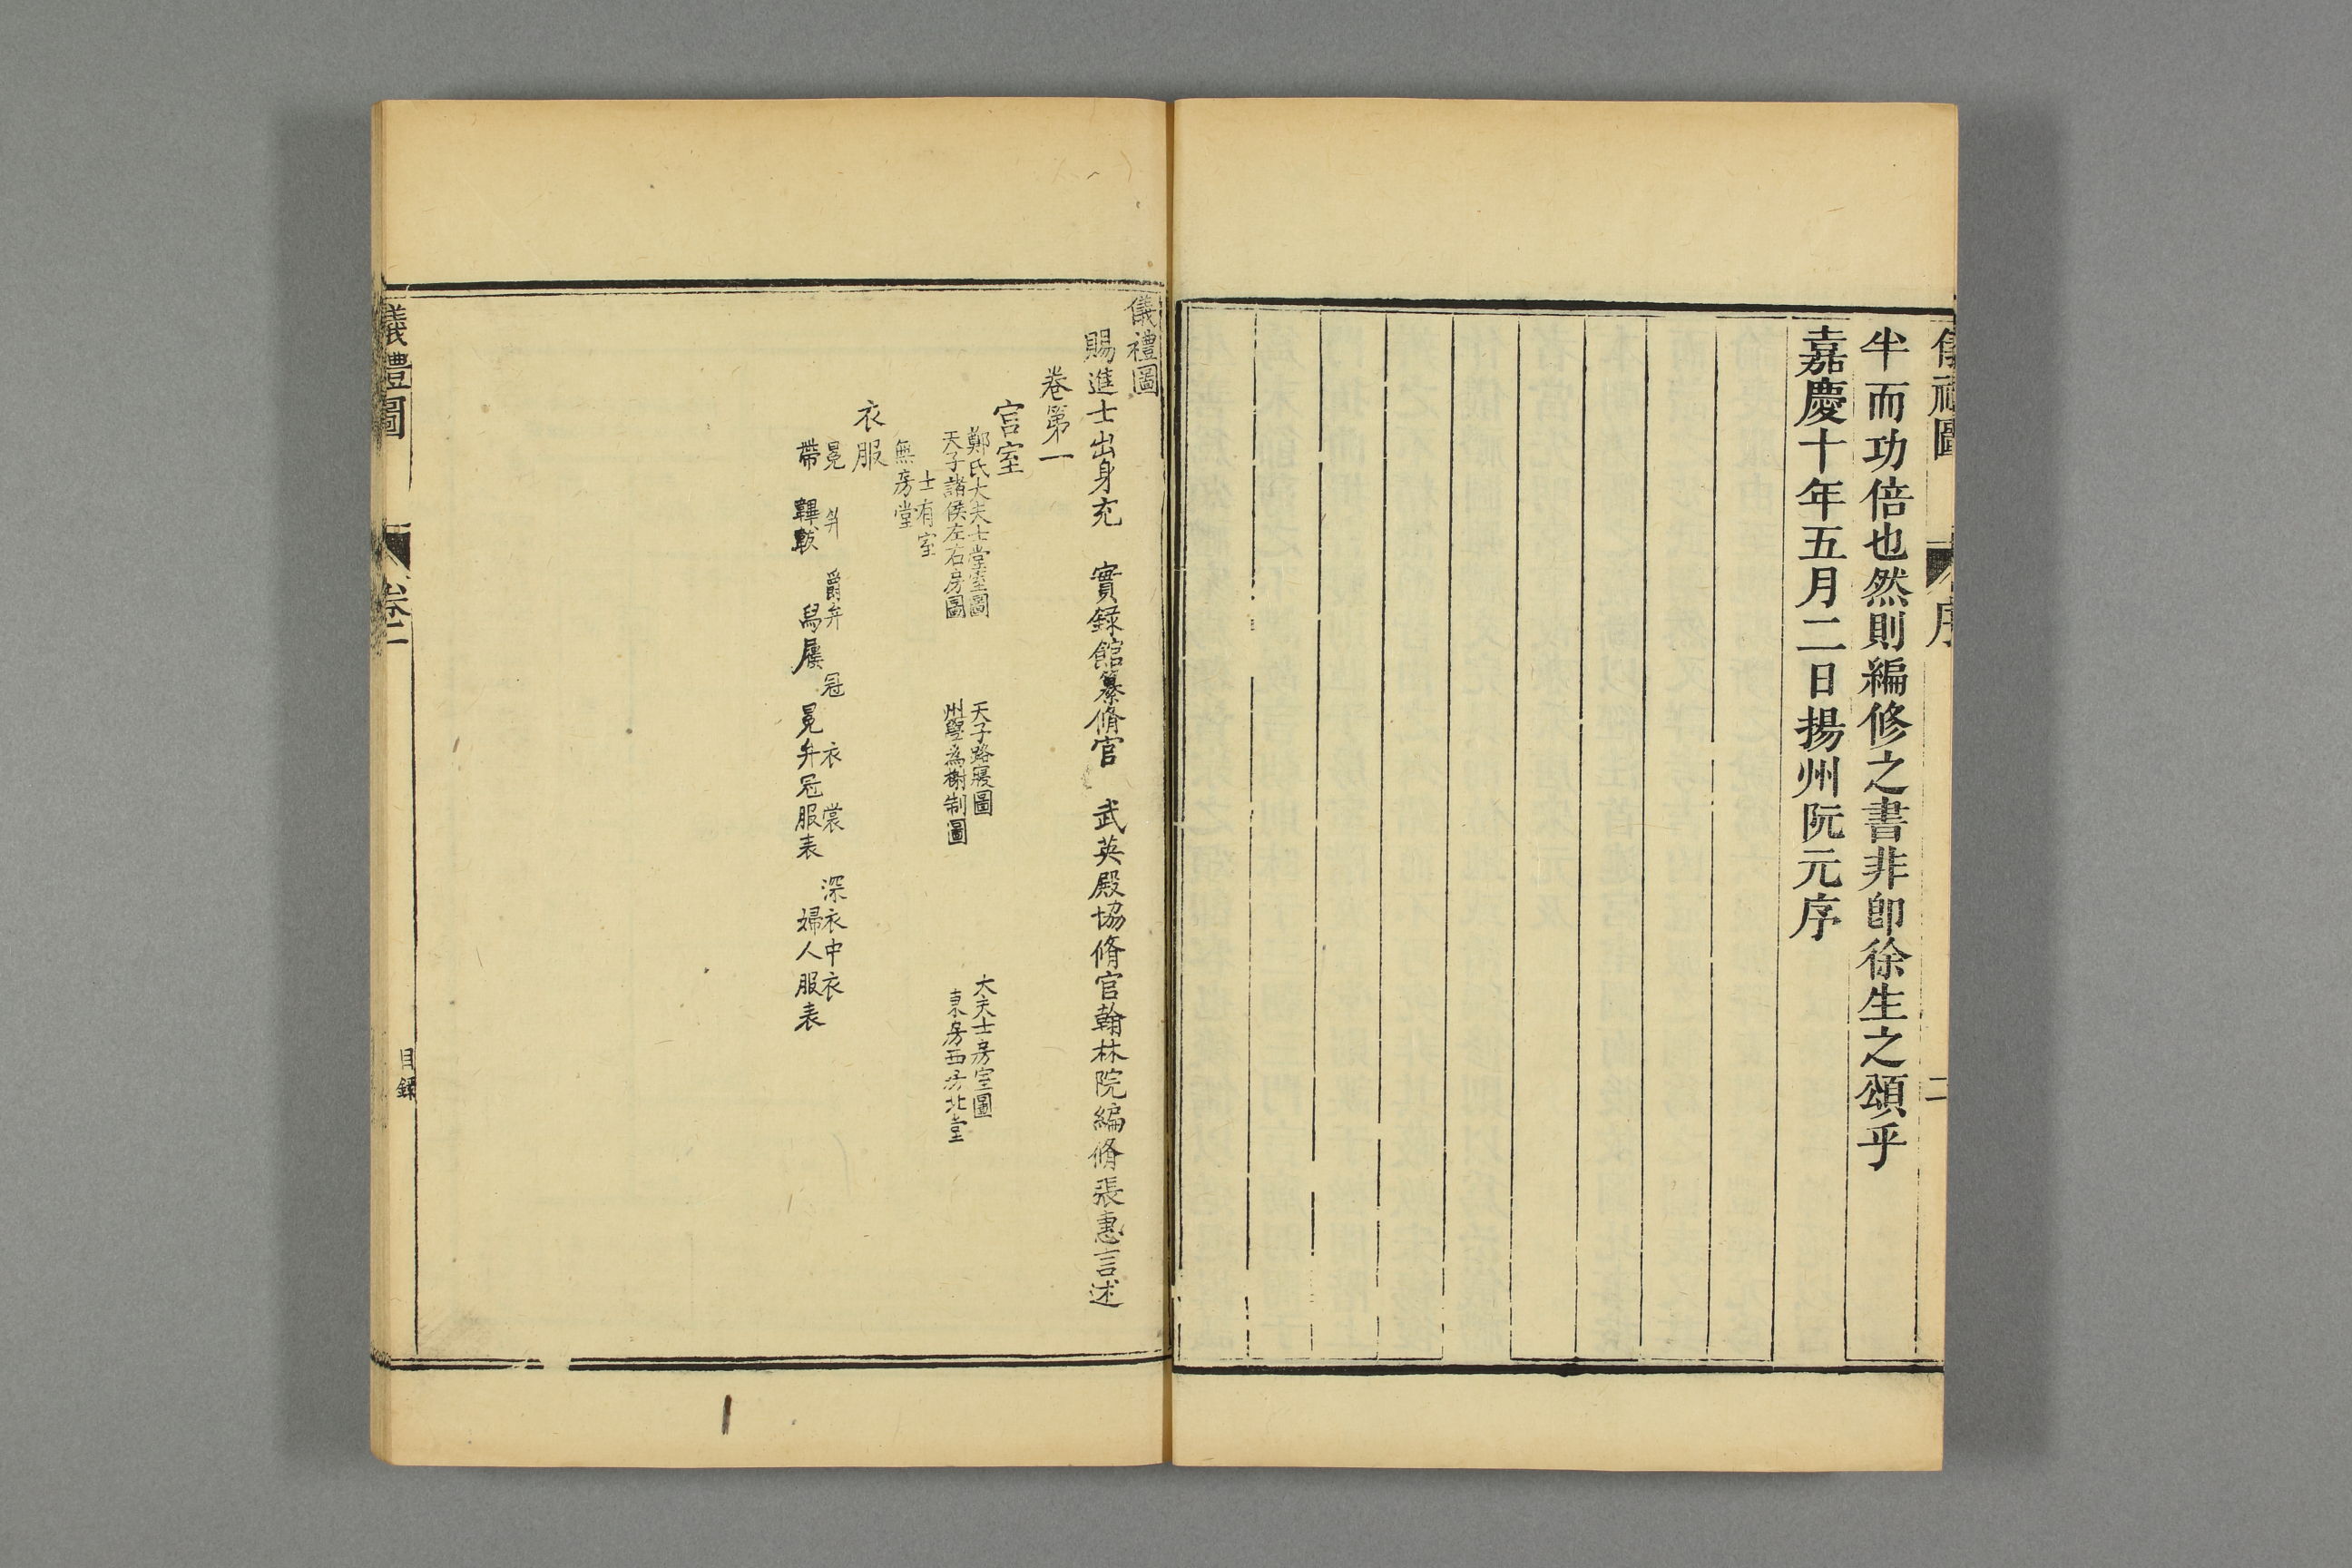 儀禮圖
序
二
半而功倍也然則編修之書非卽徐生之頌乎
嘉慶十年五月二日揚州阮元序
儀禮圖
賜進士出身充 實錄館纂脩官 武英殿協脩官翰林院編脩張惠言述
卷第一
宫室
鄭氏大夫士堂室圖 天子路寢圖 大夫士房室圖
天子諸侯左右房圖 州學為榭制圖 東房西房北堂
士有室
無房堂
衣服
冕 弁 爵弁 冠 衣 裳 深衣中衣
帶 韠韍 舄屨 冕弁冠服表 婦人服表
儀禮圖
卷一
目錄